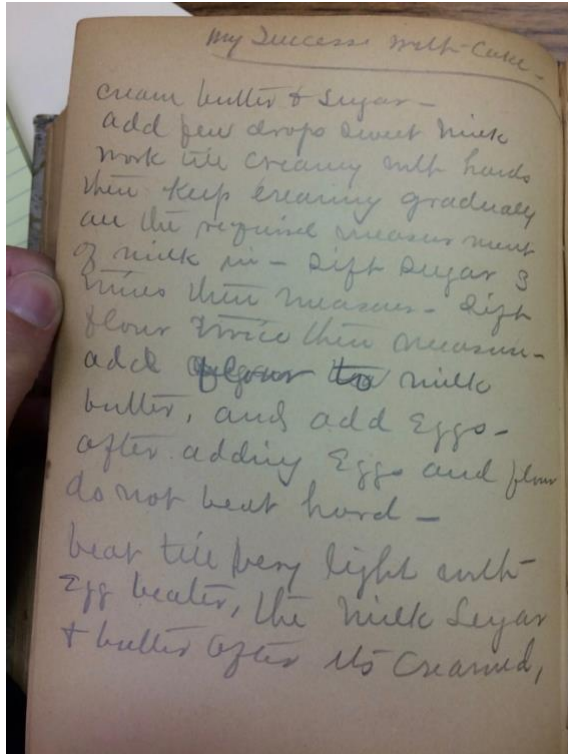 My Success with Cake -
cream butter & Sugar -
add few drops sweet milk
work till creamy with hands
then keep creaming gradually
all the required measurement
of milk in - Sift Sugar 3
times then measure - Sift
flour twice then measure -
add flour to milk
butter, and add Eggs -
after adding Eggs and flour
do not beat hard -
beat till very light with
Egg beater, the milk Sugar
& butter after its creamed,